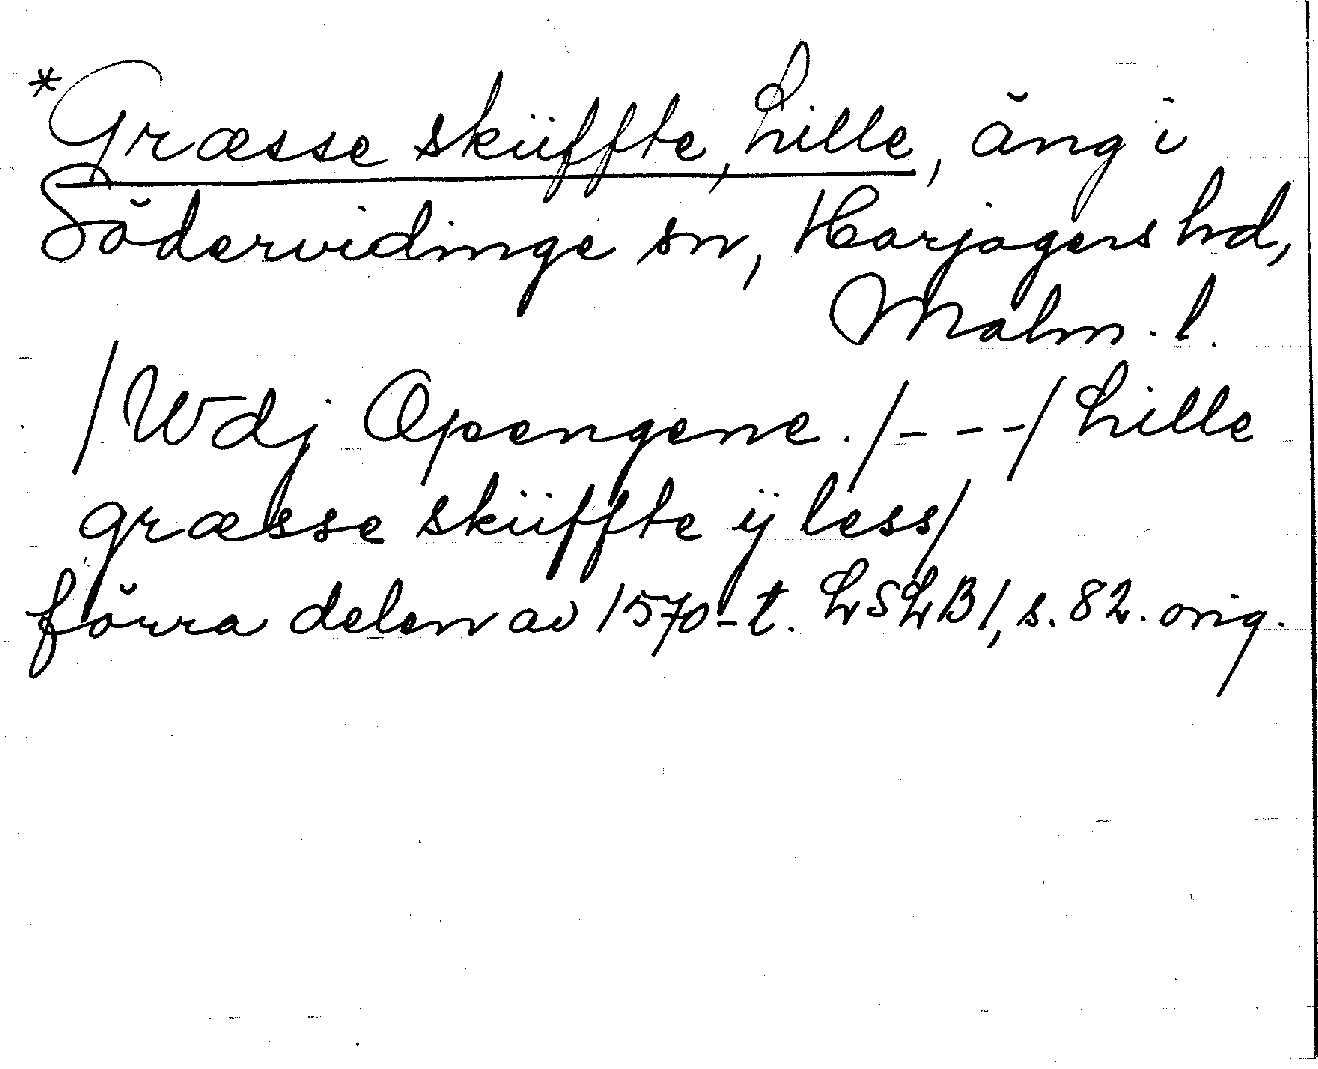 *Græsse skiiffte, Lille, äng i
Södervidinge sn, Harjagers hd,
Malm. l.
/Wdj Opengene./---/Lille
græsse skiiffte ij less/
förra delen av 1570-t. LSLB1, s. 82. orig.